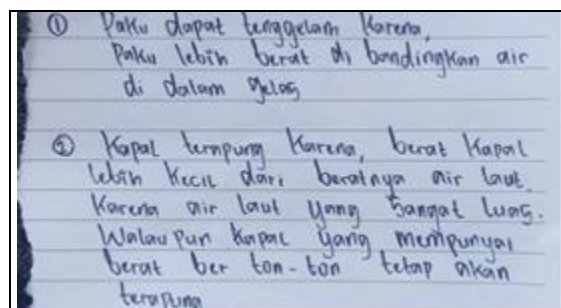 ① Paku dapat tenggelam karena,
Paku lebih berat di bandingkan air
di dalam gelas
② Kapal terapung karena, berat kapal
lebih kecil dari beratnya air laut.
Karena air laut yang sangat luas.
Walau pun kapal yang mempunyai
berat ber ton-ton tetap akan
terapung